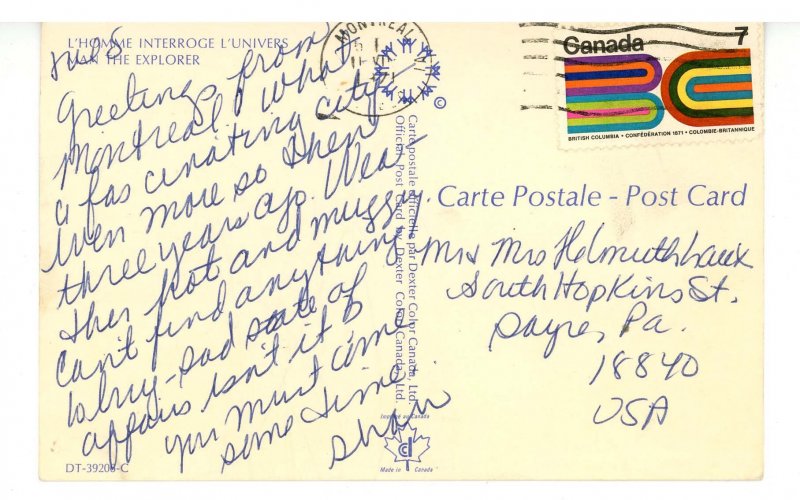 L'HOMME INTERROGE L'UNIVERS
MAN THE EXPLORER
Greetings from
Montreal! What
a fascinating city
even more so then
three years ago. Wea-
ther hot and muggy.
Can't find anything
to buy - sad state of
affairs isn't it?
You must come
some time.
DT-39206-C
MONTREAL
Canada
7
BRITISH COLUMBIA • CONFÉDERATION 1871 • COLOMBIE-BRITANNIQUE
©
Carte postale officielle par Dexter Color Canada, Ltd.
Official Post Card by Dexter Color Canada, Ltd.
Imprimé au Canada
Made in Canada
Carte Postale - Post Card
Mrs Helmuth
South Hopkins St.
Sayre, Pa.
18840
USA